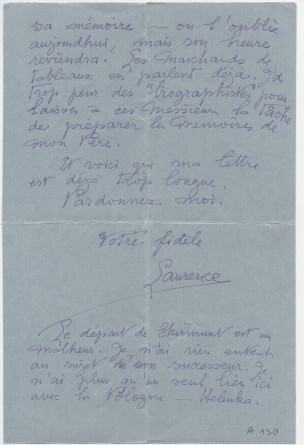 sa mémoire — on l'oublie
aujourdhui, mais son heure
reviendra. Les marchands de
tableaux en parlent déjà. J'ai
trop peur des "biographistes" pour
laisser à ces Messieurs la tâche
de préparer la Mémoires de
mon Père.
Et voici que ma lettre
est déjà trop longue.
Pardonnez moi.
Votre fidèle
Laurence
Le départ de Skirmunt est un
malheur. Je n'ai rien entendu
au sujet de son successeur. Je
n'ai plus qu'un seul lien ici
avec la Pologne — Helenka.
A 130